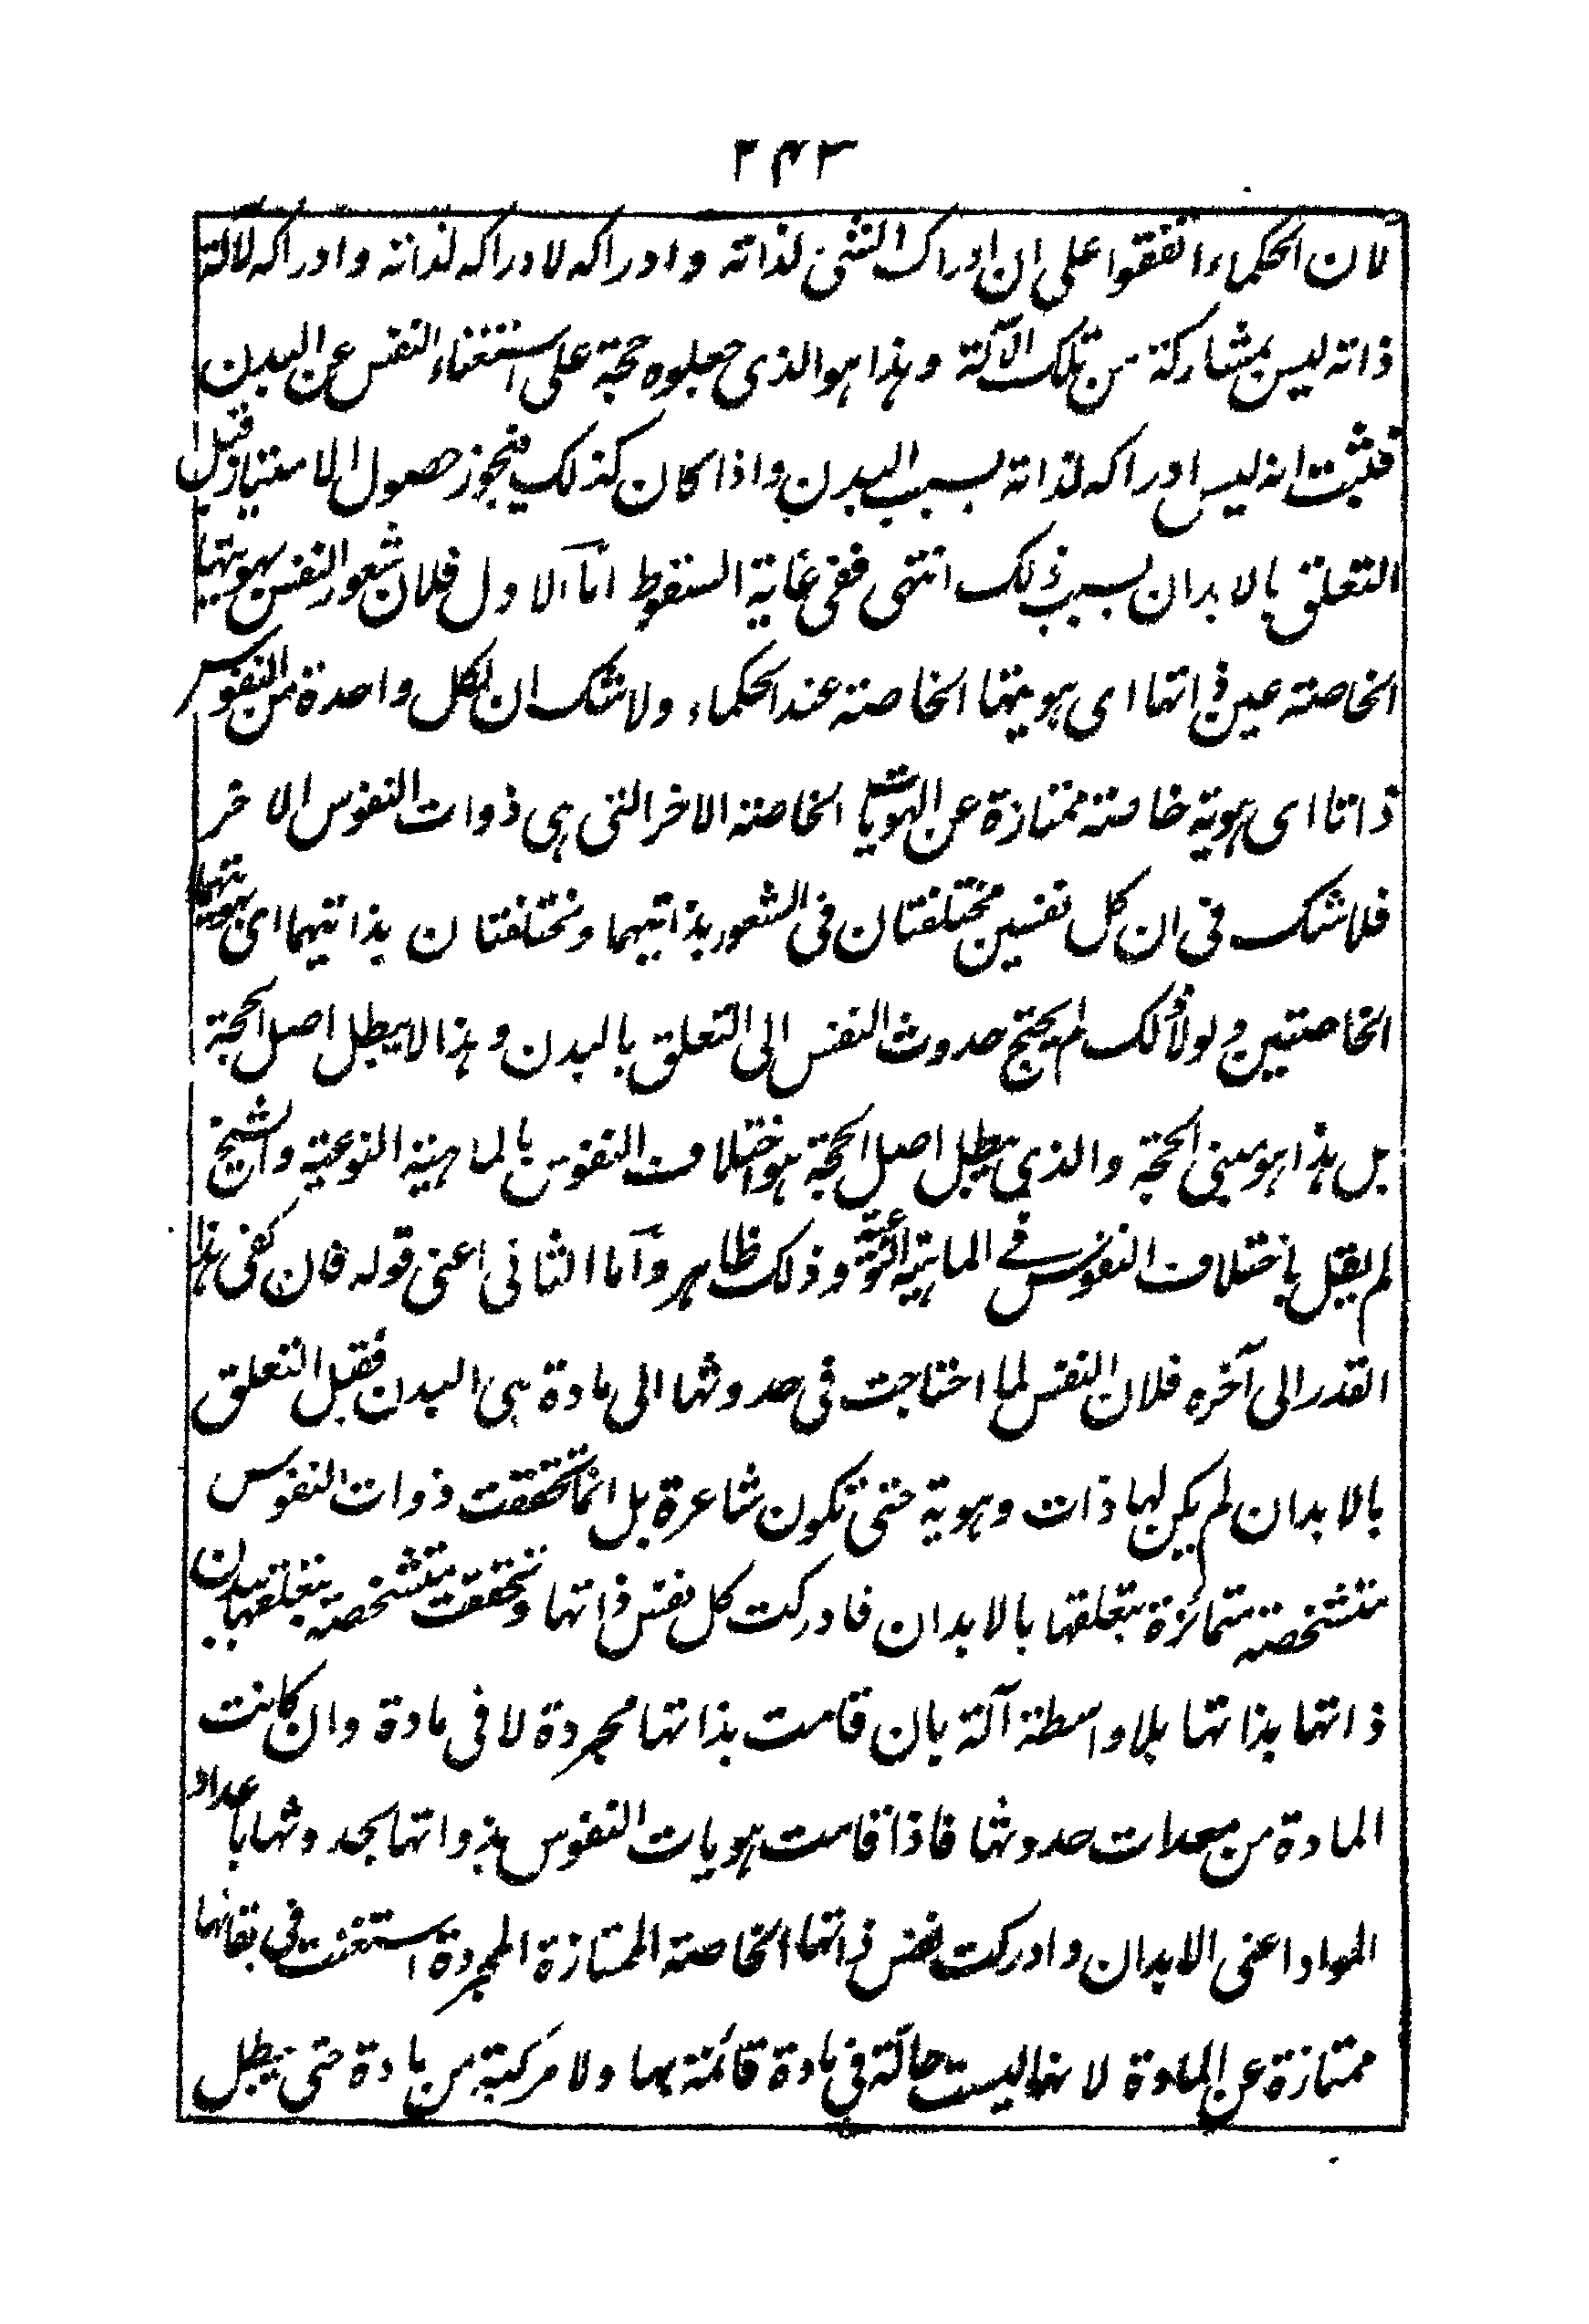 ٢٤٣
لان الحكماء اتفقوا على ان ادراك الشئ لذاته وادراكه لادراكه لذاته وادراكه لآلة
ذاته ليس بمشاركة من تلك الآلة وهذا هو الذى جعلوه حجة على استغناء النفس عن البدن
فثبت انه ليس ادراكه لذاته بسبب البدن واذا كان كذلك فيجوز حصول الامتياز قبل
التعلق بالابدان بسبب ذلك انتهى ففى غاية السقوط اما الاول فلان شعور النفس بهويتها
الخاصة عين ذاتها اى هويتها الخاصة عند الحكماء ولا شك ان لكل واحدة من النفوس
ذاتا اى هوية خاصة ممتازة عن الهويات الخاصة الاخر التى هى ذوات النفوس الاخر
فلا شك فى ان كل نفسين مختلفتان فى الشعور بذاتيهما ومختلفتان بذاتيهما اى بهويتهما
الخاصتين ولولا ذلك لم يحتج حدوث النفس الى التعلق بالبدن وهذا لا يبطل اصل الحجة
بل هذا هو مبنى الحجة والذى يبطل اصل الحجة هو اختلاف النفوس بالماهية النوعية والشيخ
لم يقل باختلاف النفوس فى الماهية النوعية وذلك ظاهر واما الثانى اعنى قوله فان كفى هذا
القدر الى آخره فلان النفس لما احتاجت فى حدوثها الى مادة هى البدن فقبل التعلق
بالابدان لم يكن لها ذات وهوية حتى تكون شاعرة بل انما تحققت ذوات النفوس
متشخصة متمائزة بتعلقها بالابدان فادركت كل نفس ذاتها وتحققت متشخصة بتعلقها ببدن
ذاتها بذاتها بلا واسطة آلة بان قامت بذاتها مجردة لا فى مادة وان كانت
المادة من معدات حدوثها فاذا قامت هويات النفوس بذواتها بحدوثها باعداد
المواد اعنى الابدان وادركت نفس ذاتها الخاصة الممتازة المجردة استغنت فى بقائها
ممتازة عن المادة لانها ليست حالة فى مادة قائمة بها ولا مركبة من مادة حتى يبطل